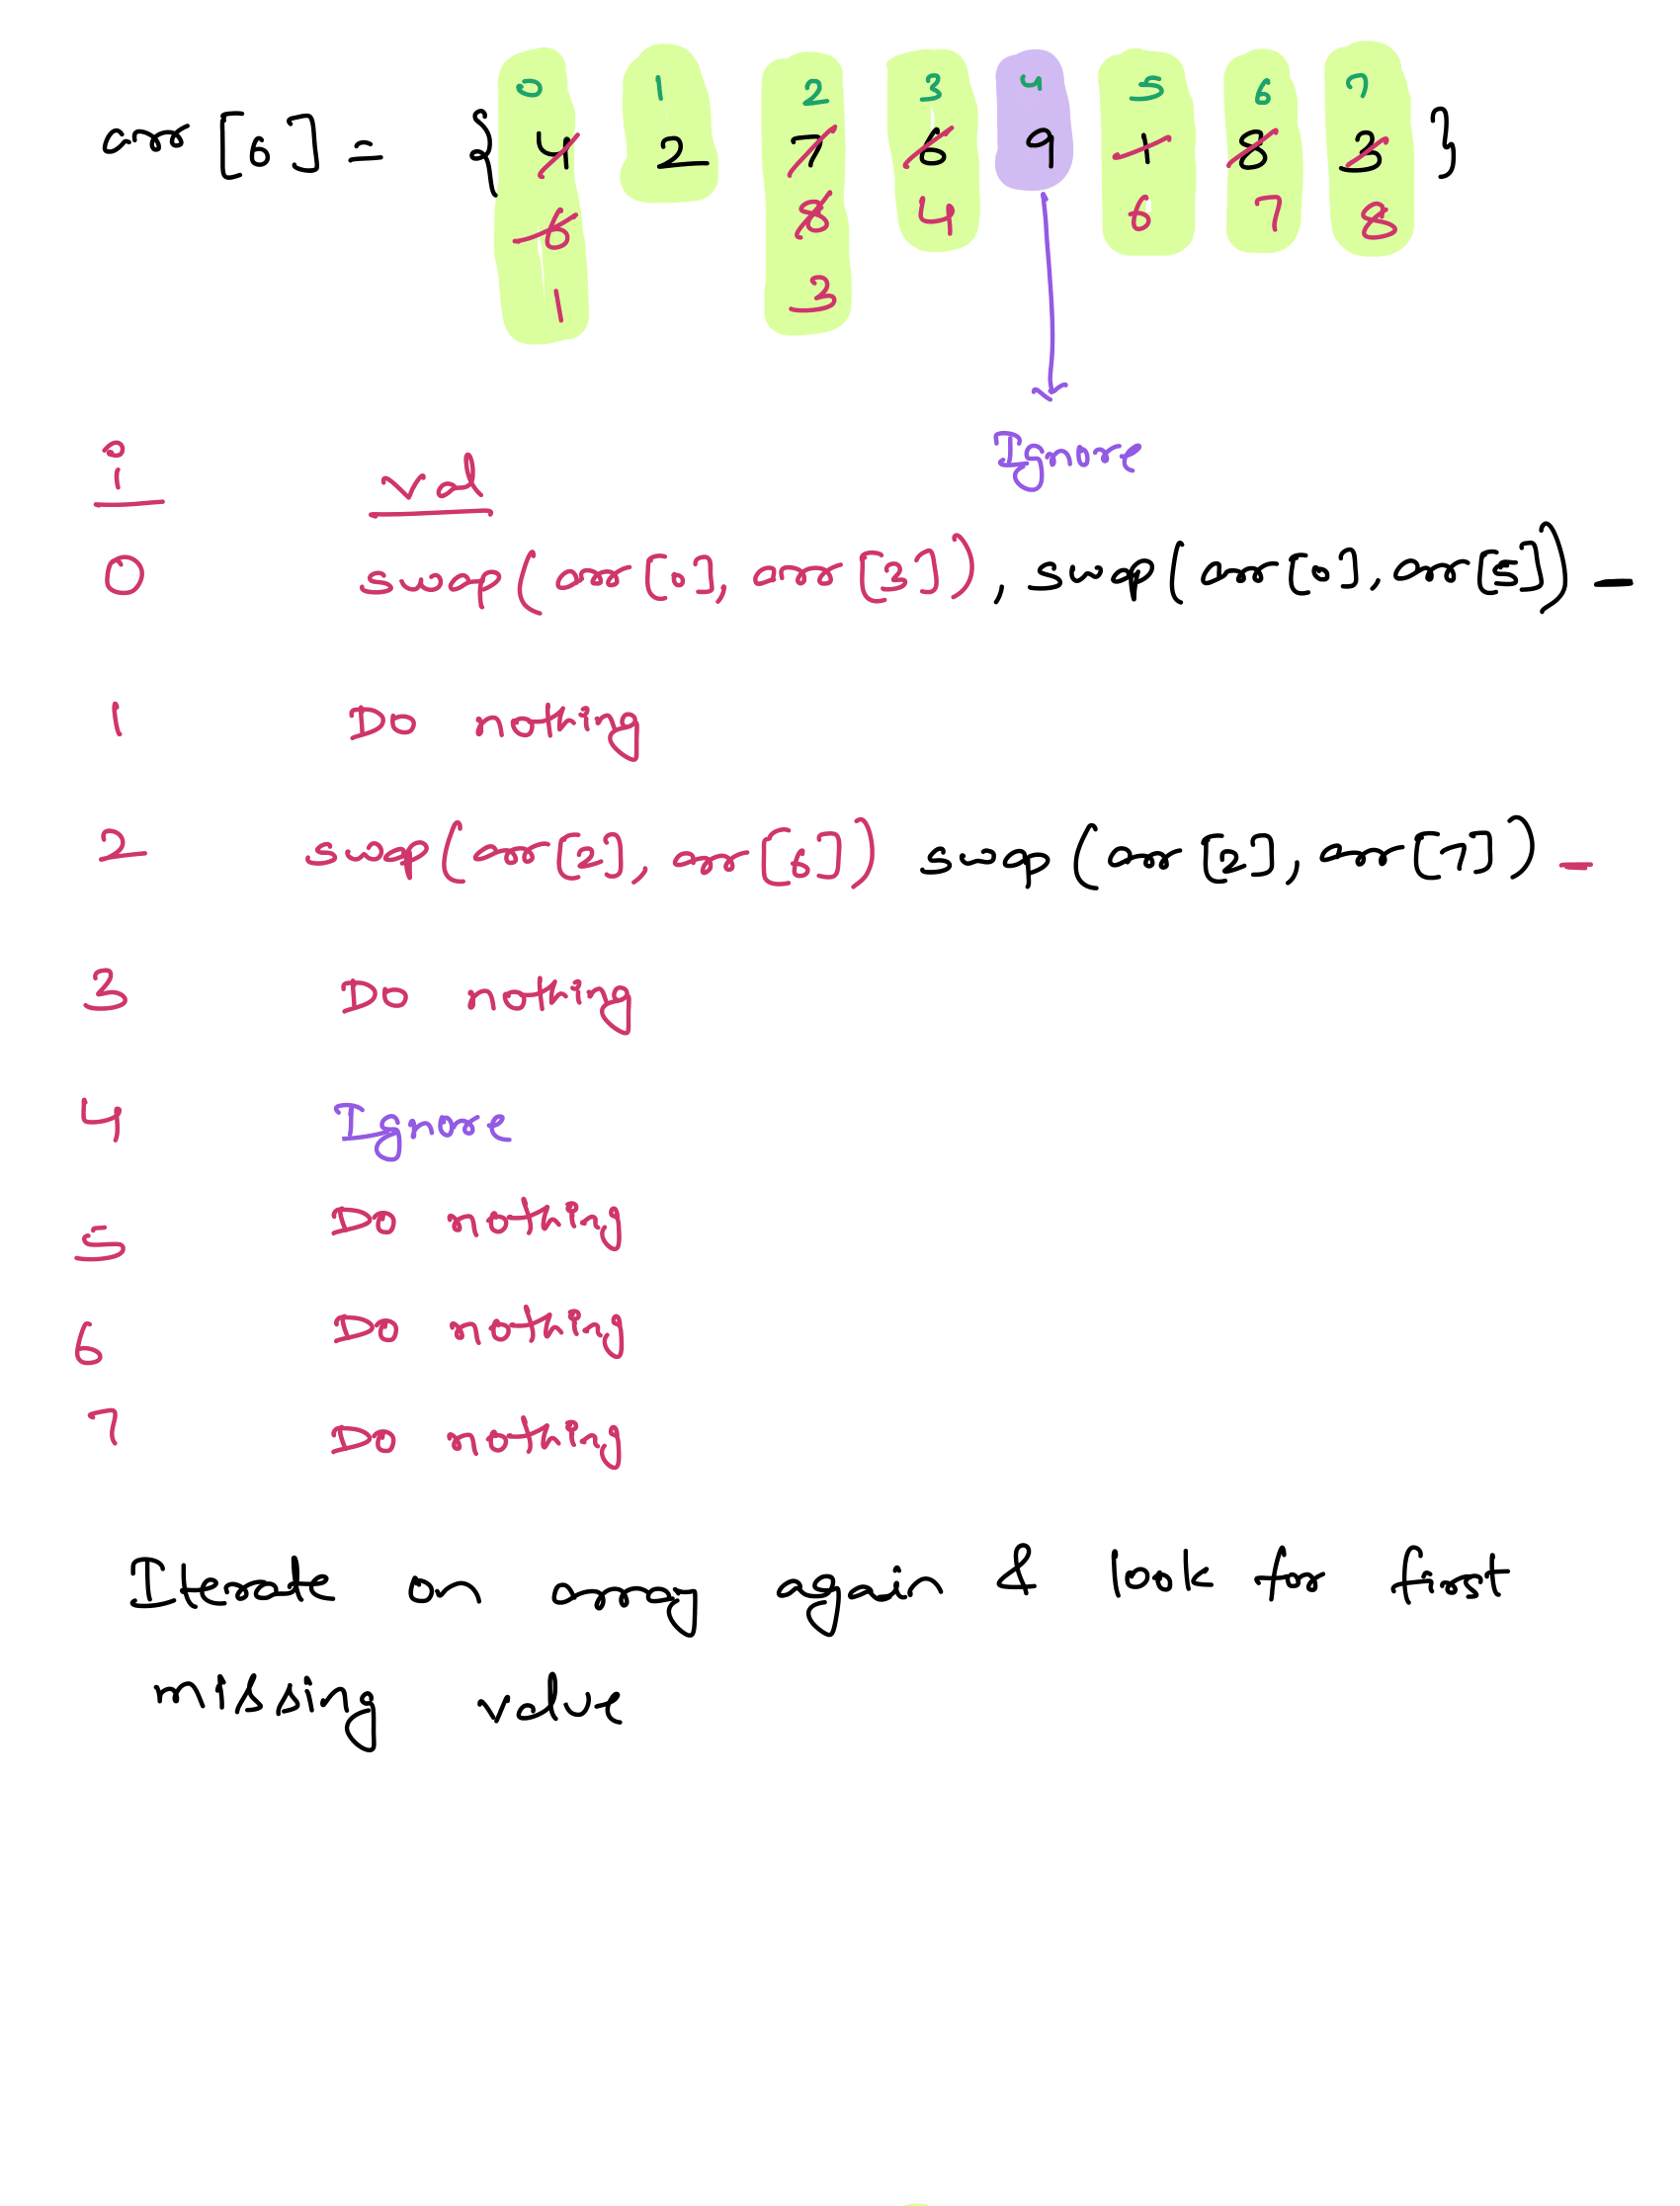 0 1 2 3 4 5 6 7
arr [6] = { 4 2 7 6 9 1 8 3 }
6 8 4 6 7 8
1 3
Ignore
i val
0 swap(arr[0], arr[3]), swap(arr[0], arr[5]) -
1 Do nothing
2 swap(arr[2], arr[6]) swap(arr[2], arr[7]) -
3 Do nothing
4 Ignore
5 Do nothing
6 Do nothing
7 Do nothing
Iterate on array again & look for first
missing value